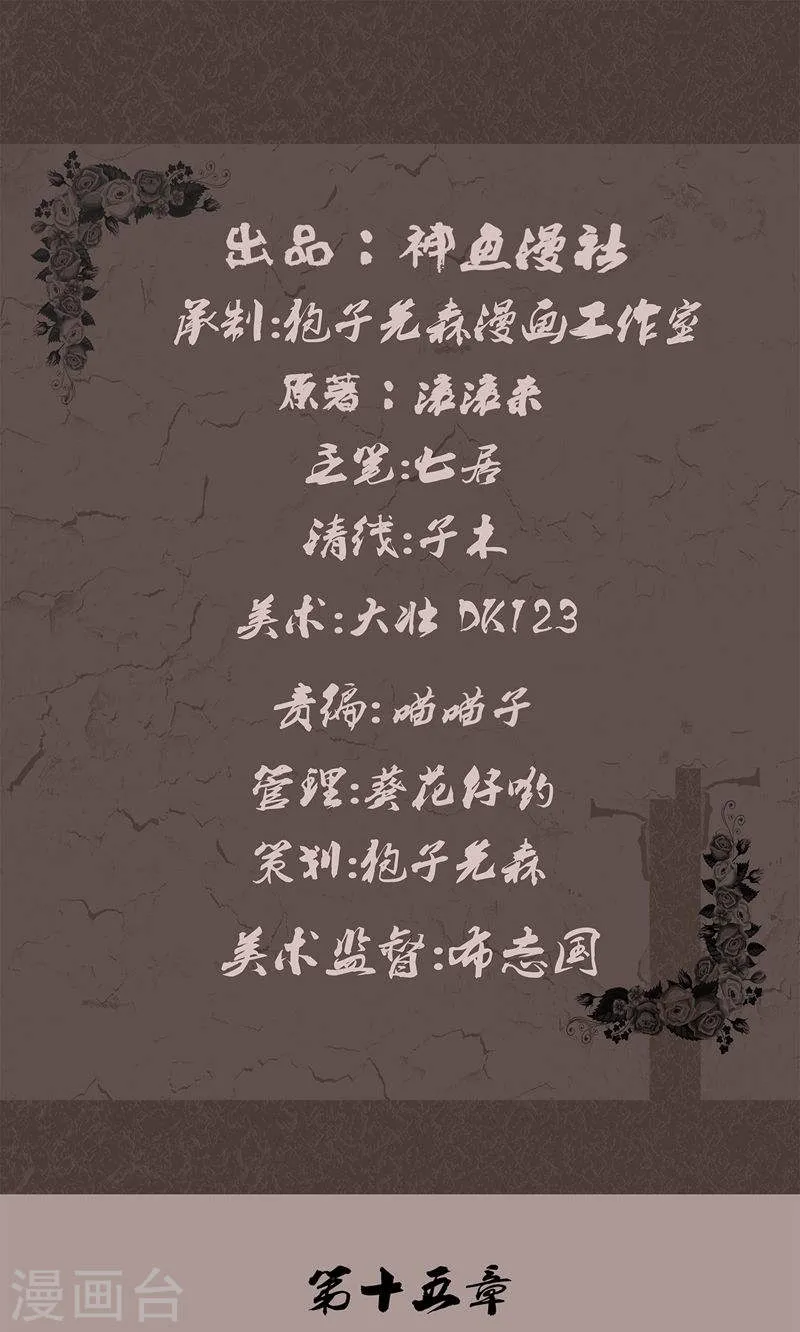 出品：神鱼漫社
承制:狍子先森漫画工作室
原著：滚滚来
主笔:七居
清线:子木
美术:大壮 DK123
责编:喵喵子
管理:葵花仔哟
策划:狍子先森
美术监督:布志国
第十五章
漫画台